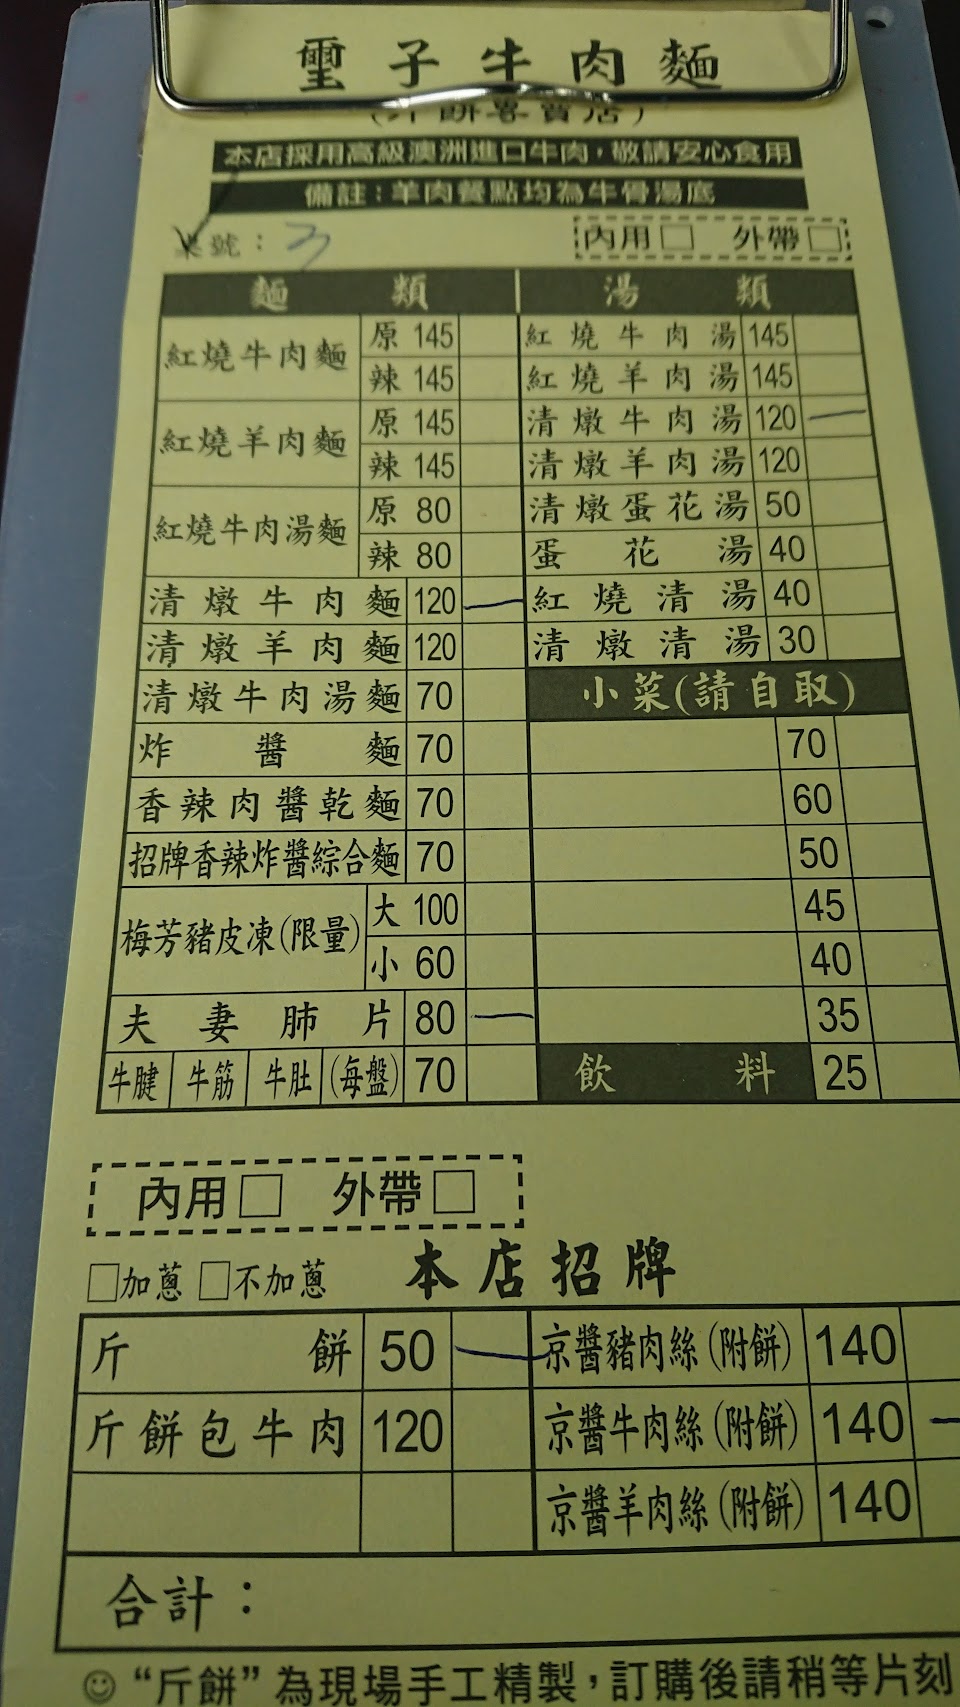 璽子牛肉麵
(斤餅專賣店)
本店採用高級澳洲進口牛肉，敬請安心食用
備註：羊肉餐點均為牛骨湯底
桌號：3 內用□ 外帶□
麵類 湯類
紅燒牛肉麵 原 145 紅燒牛肉湯 145
辣 145 紅燒羊肉湯 145
紅燒羊肉麵 原 145 清燉牛肉湯 120
辣 145 清燉羊肉湯 120
紅燒牛肉湯麵 原 80 清燉蛋花湯 50
辣 80 蛋花湯 40
清燉牛肉麵 120 紅燒清湯 40
清燉羊肉麵 120 清燉清湯 30
清燉牛肉湯麵 70 小菜(請自取)
炸醬麵 70 70
香辣肉醬乾麵 70 60
招牌香辣炸醬綜合麵 70 50
梅芳豬皮凍(限量) 大 100 45
小 60 40
夫妻肺片 80 35
牛腱 牛筋 牛肚 (每盤) 70 飲料 25
內用□ 外帶□
□加蔥 □不加蔥 本店招牌
斤餅 50 京醬豬肉絲(附餅) 140
斤餅包牛肉 120 京醬牛肉絲(附餅) 140
京醬羊肉絲(附餅) 140
合計：
☺“斤餅”為現場手工精製，訂購後請稍等片刻